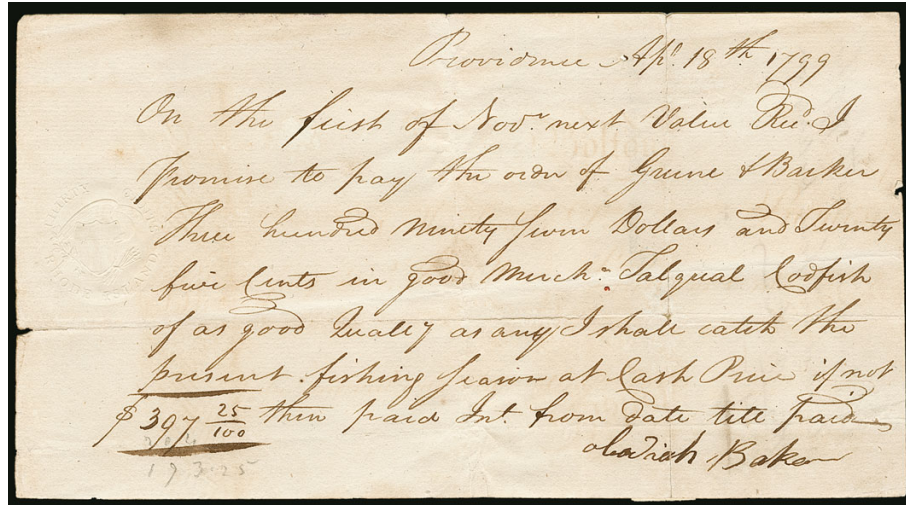 Providence Apl. 18th 1799
On the first of Novr. next Value Recd. I
Promise to pay the order of Greene & Barker
Three hundred Ninety Seven Dollars and Twenty
five Cents in good Merchn. Talqual Codfish
of as good Quality as any I shall catch the
present fishing Season at Cash Price if not
$397 25/100 then paid Int. from date till paid
Obadiah Baker
193.25